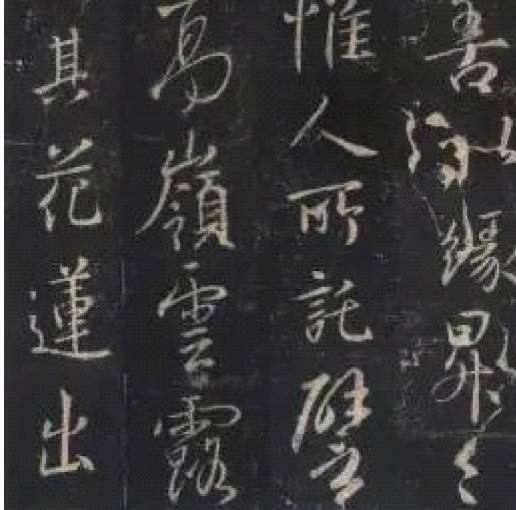 善以緣昇々
惟人所託譬
高嶺雲露
其花蓮出